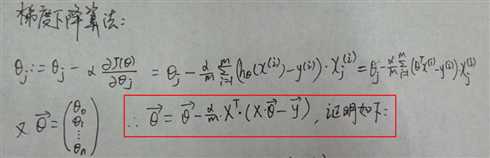 梯度下降算法:
θj := θj - α ∂J(θ)/∂θj = θj - α/m ∑_{i=1}^{m} (hθ(x^(i)) - y^(i))·xj^(i) = θj - α/m ∑_{i=1}^{m} (θ^T x^(i) - y^(i))·xj^(i)
又 θ⃗ = (θ0 θ1 ⋮ θn) ∴ θ⃗ = θ⃗ - α/m·X^T·(X·θ⃗ - y⃗), 证明如下: